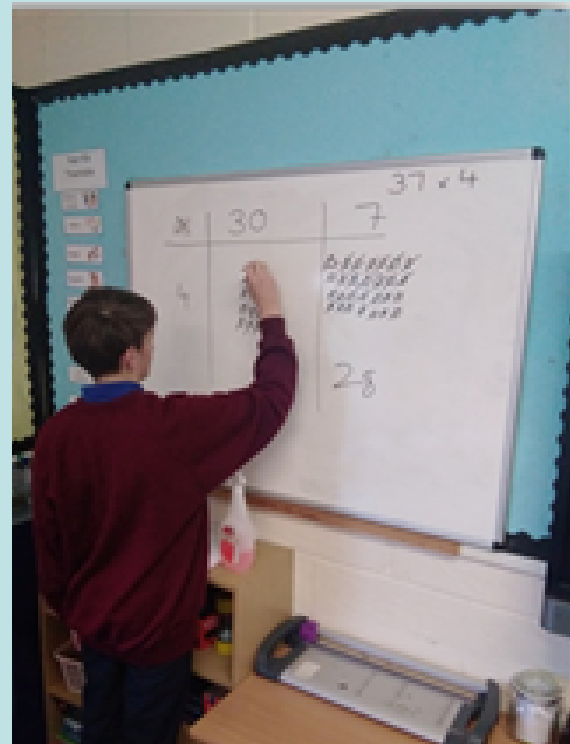 37 x 4
x 30 7
4
28